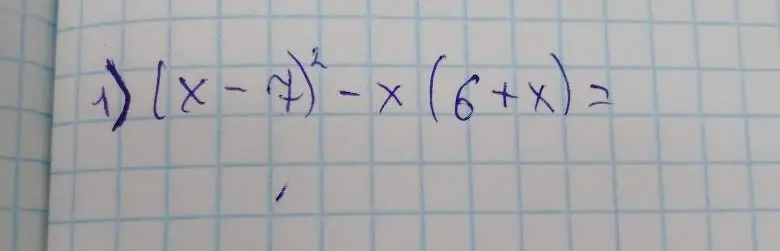 1) (x - 7)² - x (6 + x) =